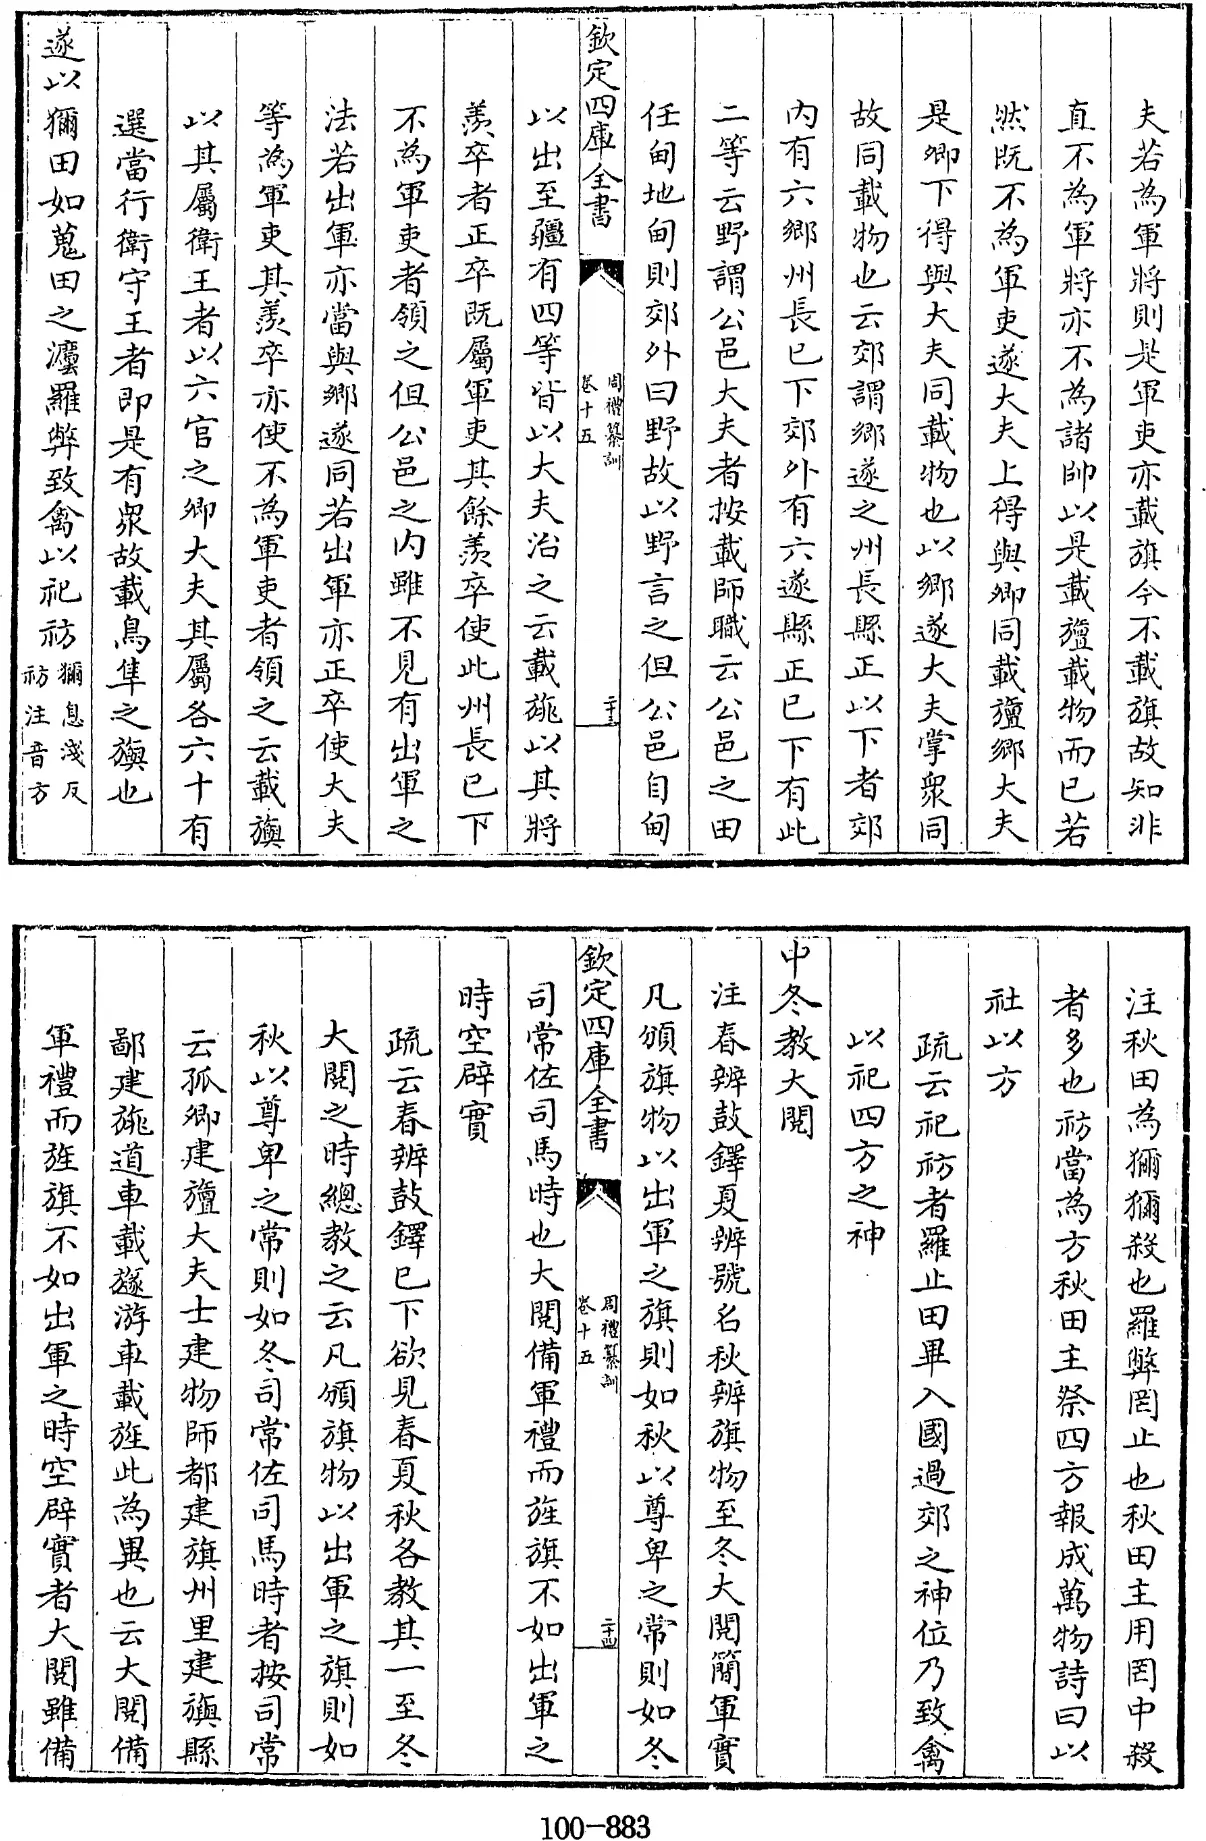 夫若為軍將則是軍吏亦載旗今不載旗故知非
直不為軍將亦不為諸帥以是載旜載物而已若
然既不為軍吏遂大夫上得與卿同載旜鄉大夫
是卿下得與大夫同載物也以鄉遂大夫掌衆同
故同載物也云郊謂鄉遂之州長縣正以下者郊
内有六鄉州長已下郊外有六遂縣正已下有此
二等云野謂公邑大夫者按載師職云公邑之田
任甸地甸則郊外曰野故以野言之但公邑自甸
欽定四庫全書
周禮纂訓
卷十五
二十三
以出至疆有四等皆以大夫治之云載旐以其將
羨卒者正卒既屬軍吏其餘羨卒使此州長已下
不為軍吏者領之但公邑之内雖不見有出軍之
法若出軍亦當與鄉遂同若出軍亦正卒使大夫
等為軍吏其羨卒亦使不為軍吏者領之云載旟
以其屬衛王者以六官之卿大夫其屬各六十有
選當行衛守王者即是有衆故載鳥隼之旟也
遂以獮田如蒐田之灋羅弊致禽以祀祊獮息淺反祊注音方
注秋田為獮獮殺也羅弊罔止也秋田主用罔中殺
者多也祊當為方秋田主祭四方報成萬物詩曰以
社以方
疏云祀祊者羅止田畢入國過郊之神位乃致禽
以祀四方之神
中冬教大閱
注春辨鼓鐸夏辨號名秋辨旗物至冬大閱簡軍實
凡頒旗物以出軍之旗則如秋以尊卑之常則如冬
欽定四庫全書
周禮纂訓
卷十五
二十四
司常佐司馬時也大閱備軍禮而旌旗不如出軍之
時空辟實
疏云春辨鼓鐸已下欲見春夏秋各教其一至冬
大閱之時總教之云凡頒旗物以出軍之旗則如
秋以尊卑之常則如冬司常佐司馬時者按司常
云孤卿建旜大夫士建物師都建旗州里建旟縣
鄙建旐道車載旞游車載旌此為異也云大閱備
軍禮而旌旗不如出軍之時空辟實者大閱雖備
100-883